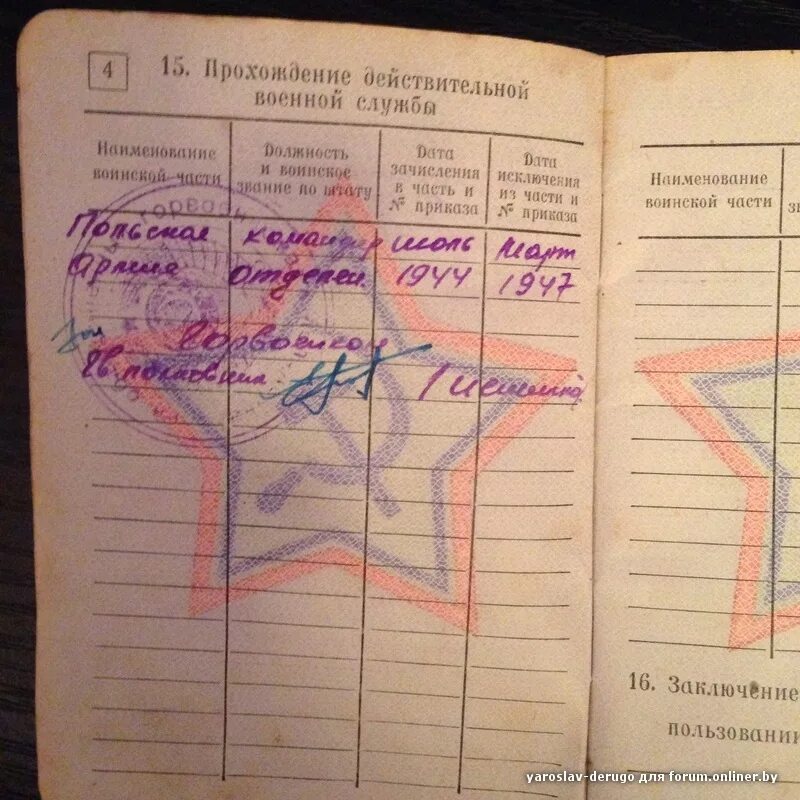 4
15. Прохождение действительной
военной службы
Наименование
воинской части
Должность
и воинское
звание по штату
Дата
зачисления
в часть и
№ приказа
Дата
исключения
из части и
№ приказа
Польская командир июль Март
Армия отделен. 1944 1947
Горвоенком
Гв полковник
Наименование
воинской части
16. Заключение
пользовани
yaroslav-derugo для forum.onliner.by